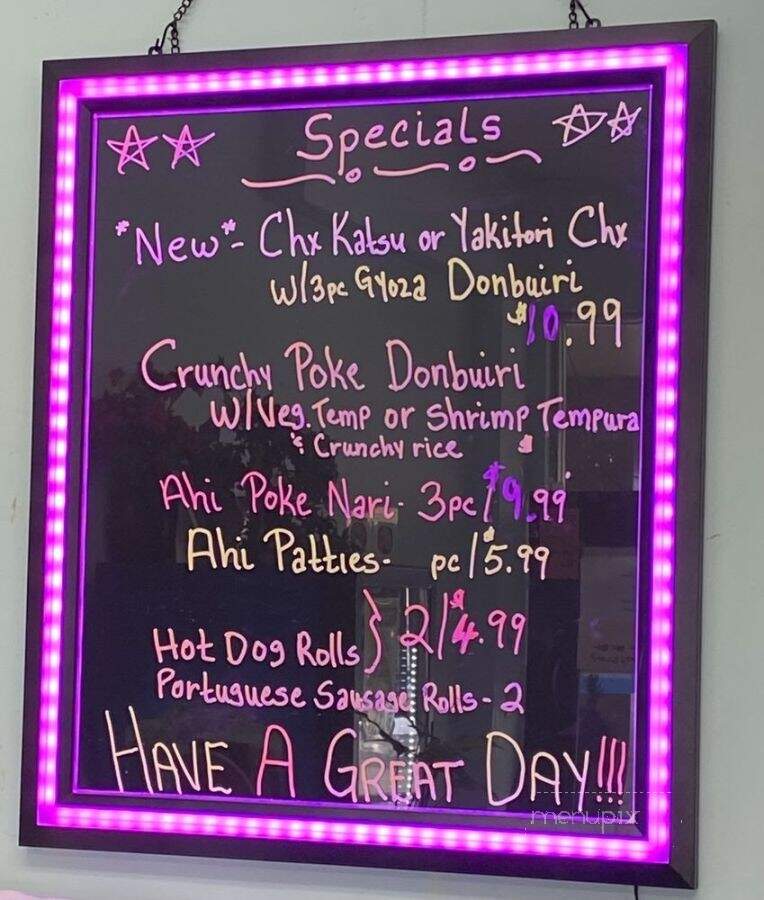 Specials
*New*- Chx Katsu or Yakitori Chx
w/3pc Gyoza Donbuiri
$10.99
Crunchy Poke Donbuiri
w/Veg. Temp or Shrimp Tempura
& Crunchy rice
Ahi Poke Nari- 3pc/$9.99
Ahi Patties- pc/$5.99
Hot Dog Rolls } 2/$4.99
Portuguese Sausage Rolls - 2
HAVE A GREAT DAY!!!
menupix